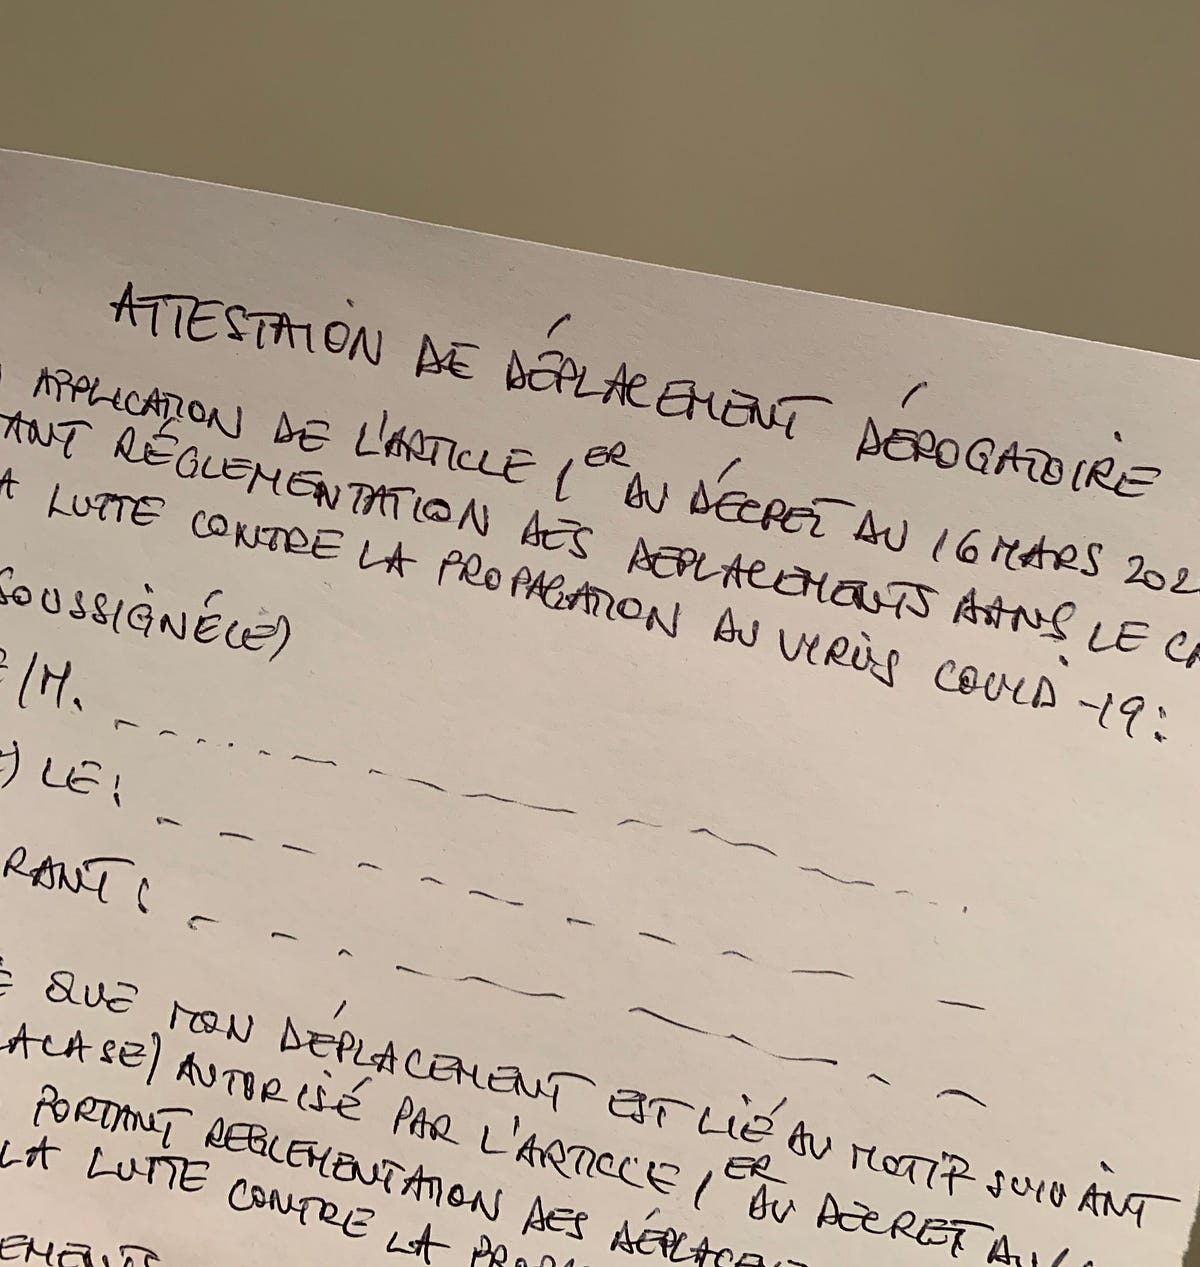 ATTESTAION DE DÉPLACEMENT DÉROGATOIRE
APPLICATION DE L'ARTICLE 1ER DU DÉCRET DU 16 MARS 202
ANT RÉGLEMENTATION DES DEPLACEMENTS DANS LE CA
A LUTTE CONTRE LA PROPAGATION DU VIRUS COVID-19:
SOUSSIGNÉ(E)
E/M.
) LE:
RANT:
E QUE MON DÉPLACEMENT EST LIÉ AU MOTIF SUIVANT
LA CASE) AUTORISÉ PAR L'ARTICLE 1ER DU DÉCRET DU 1
PORTANT REGLEMENTATION DES DÉPLACEM
LA LUTTE CONTRE LA PROP
EMENTS